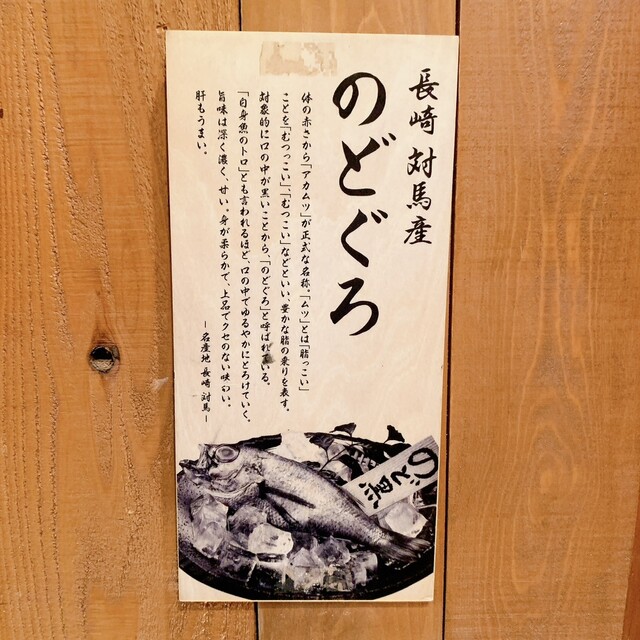 長崎 対馬産
のどぐろ
体の赤さから「アカムツ」が正式な名称。「ムツ」とは「脂っこい」
ことを「むつっこい」、「むつこい」などといい、豊かな脂の乗りを表す。
対象的に口の中が黒いことから、「のどぐろ」と呼ばれている。
「白身魚のトロ」とも言われるほど、口の中でゆるやかにとろけていく。
旨味は深く濃く、甘い。身が柔らかで、上品でクセのない味わい。
肝もうまい。
－名産地 長崎 対馬－
のど黒